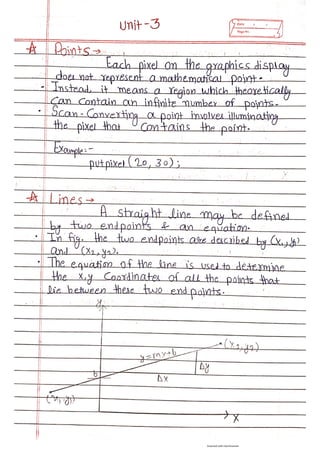 Unit-3
Date
Page No.
Points →
Each pixel on the graphics display
does not represent a mathematical point.
• Instead, it means a region which theoretically
can contain an infinite number of points.
• Scan-Converting a point involves illuminating
the pixel that contains the point.
Example:-
putpixel (20, 30);
Lines →
A straight line may be defined
by two endpoints & an equation.
• In fig, the two endpoints are described by (x₁,y₁)
and (x₂,y₂).
• The equation of the line is used to determine
the x,y coordinates of all the points that
lie between these two endpoints.
y
(x₂,y₂)
y=mx+b
Δy
b
Δx
(x₁,y₁)
x